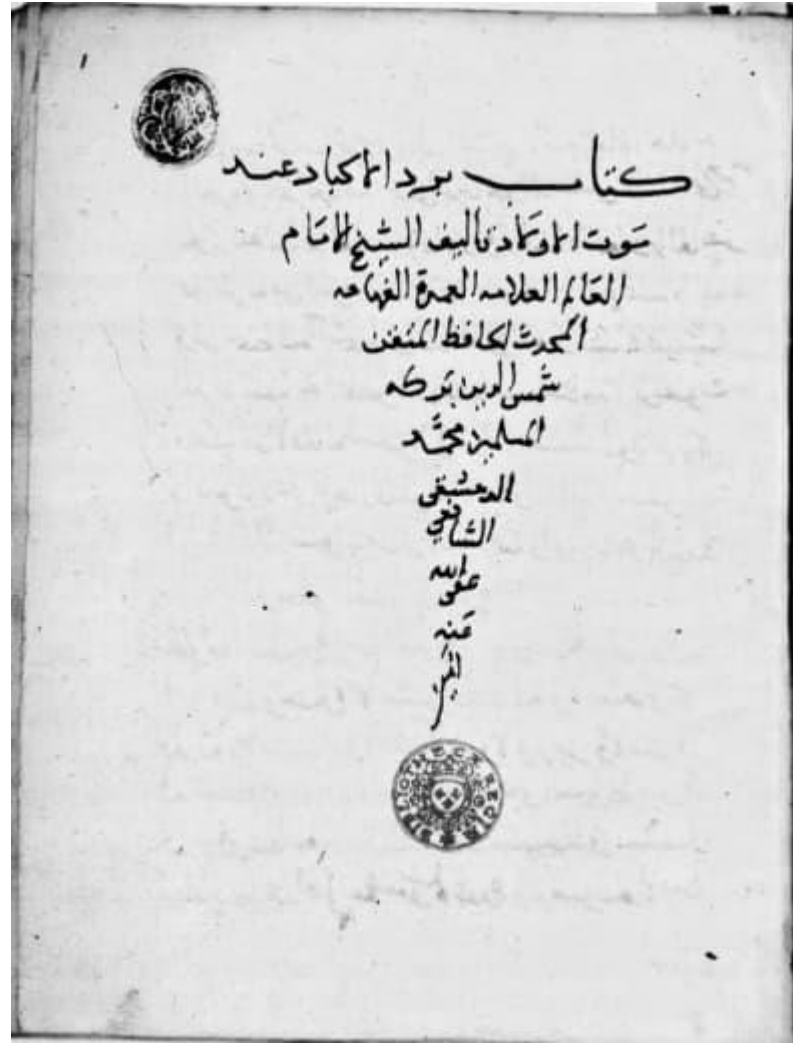 كتاب برد الاكباد عند
موت الاولاد تاليف الشيخ الامام
العالم العلامه العمدة الفهامه
المحدث الحافظ المتقن
شمس الدين بركه
المسلمين محمد
الدمشقي
الشافعي
عفى الله
عنه
BIBLIOTHECÆ REGIÆ